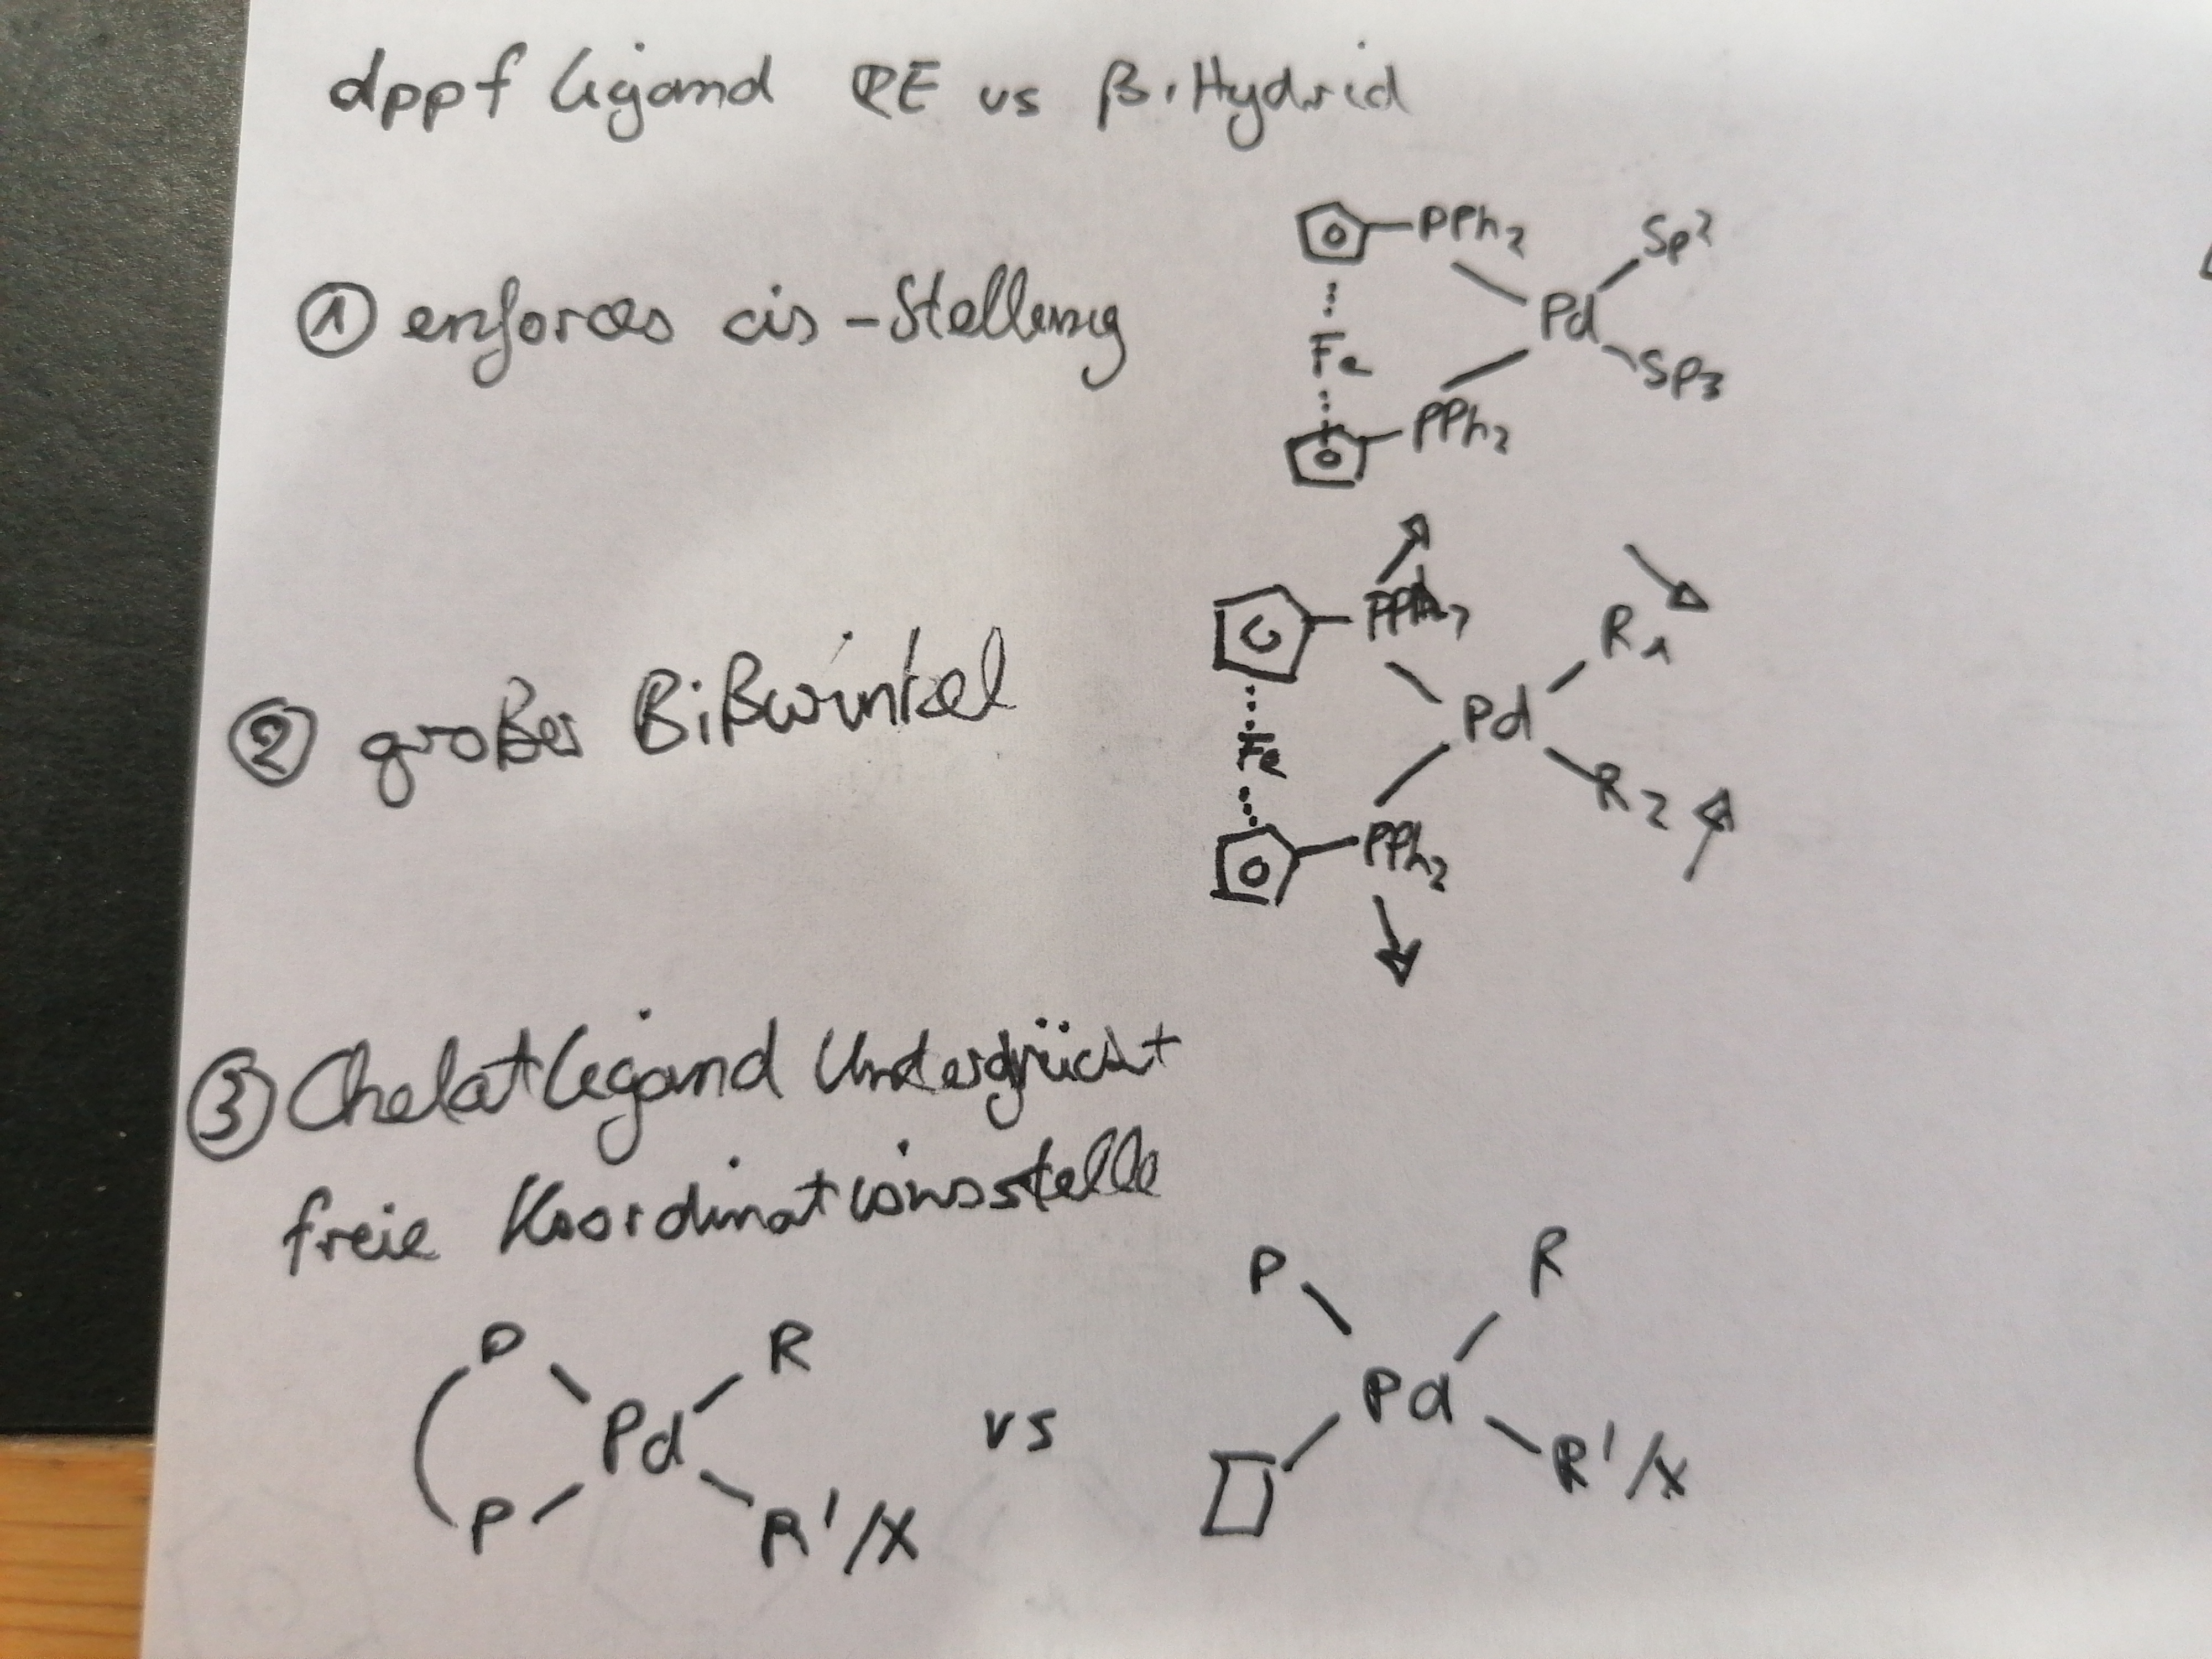 dppf Ligand RE vs β-Hydrid
① enforces cis-Stellung
PPh2
Sp2
Pd
Fe
SP3
PPh2
② großer Bißwinkel
PPh2
R1
Pd
Fe
R2
PPh2
③ Chelatligand Unterdrückt
freie Koordinationsstelle
P R
Pd
P R'/X
vs
P R
Pd
R'/X